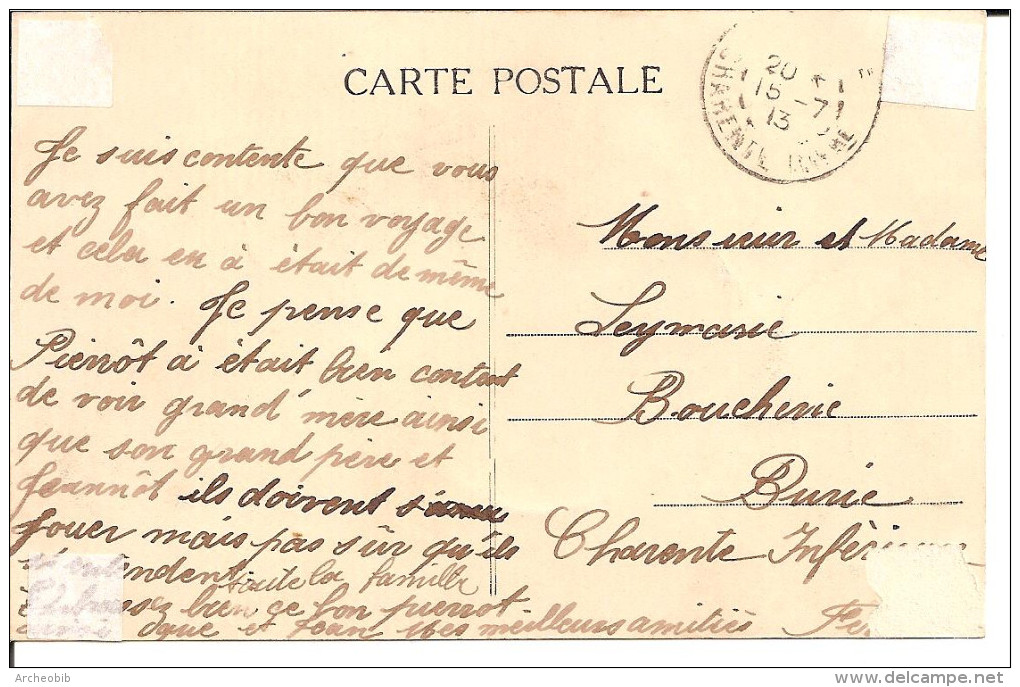 CARTE POSTALE
20
15 -7
13
CHARENTE INFRE
Je suis contente que vous
avez fait un bon voyage
et cela en à était de même
de moi. Je pense que
Pierrôt à était bien content
de voir grand'mère ainsi
que son grand père et
Jeannôt ils doivent s'amu
Jouer mais pas sûr qu'ils
s'entendent toute la famille
bien ce bon pierrot
que et Jean mes meilleurs amitiés
Monsieur et Madame
Leymarie
Boucherie
Burie
Charente Inférieure
Archeobib
www.delcampe.net